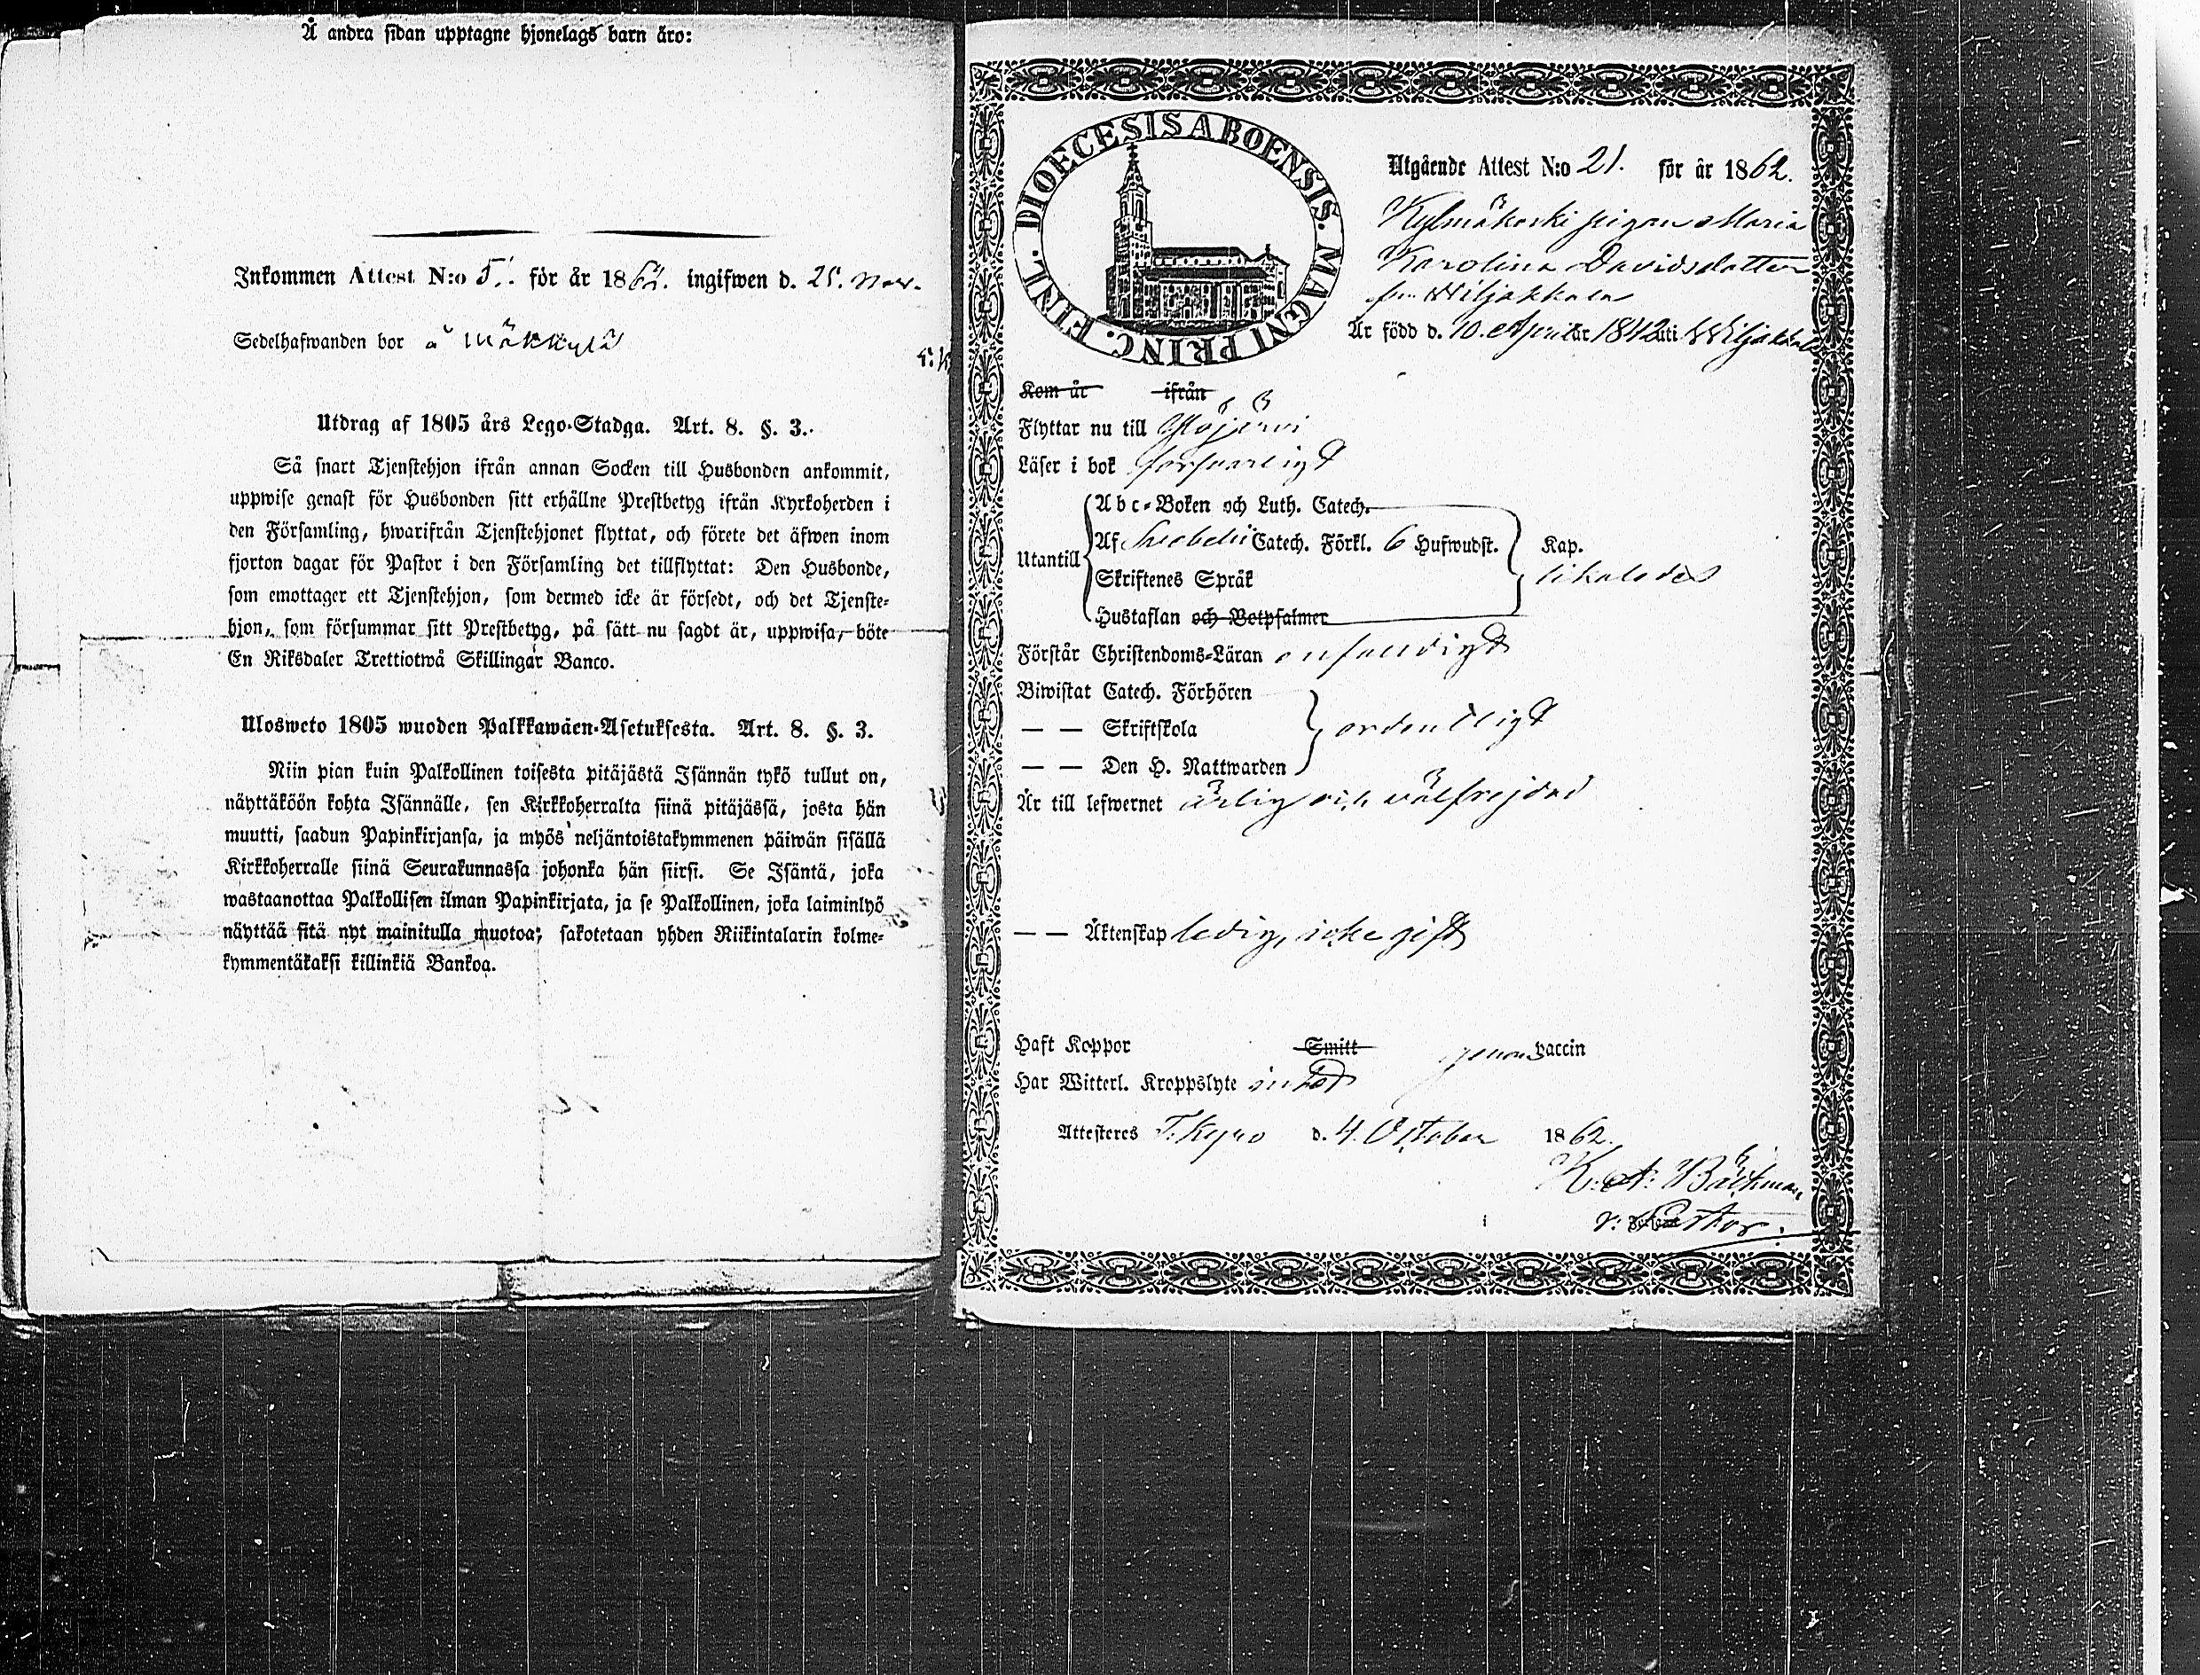 Å andra sidan upptagne hjonelags barn äro:
Inkommen Attest N:o 5. för år 1862. ingifwen d. 25. Nov.
Sedelhafwanden bor å Mäkkylä
Utdrag af 1805 års Lego-Stadga. Art. 8. §. 3.
Så snart Tjenstehjon ifrån annan Socken till Husbonden ankommit,
uppwise genast för Husbonden sitt erhållne Prestbetyg ifrån Kyrkoherden i
den Församling, hwarifrån Tjenstehjonet flyttat, och förete det äfwen inom
fjorton dagar för Pastor i den Församling det tillflyttat: Den Husbonde,
som emottager ett Tjenstehjon, som dermed icke är försedt, och det Tjenste-
hjon, som försummar sitt Prestbetyg, på sätt nu sagdt är, uppwisa, böte
En Riksdaler Trettiotwå Skillingar Banco.
Ulosweto 1805 wuoden Palkkawäen-Asetuksesta. Art. 8. §. 3.
Niin pian kuin Palkollinen toisesta pitäjästä Isännän tykö tullut on,
näyttäköön kohta Isännälle, sen Kirkkoherralta siinä pitäjässä, josta hän
muutti, saadun Papinkirjansa, ja myös neljäntoistakymmenen päiwän sisällä
Kirkkoherralle siinä Seurakunnassa johonka hän siirsi. Se Isäntä, joka
wastaanottaa Palkollisen ilman Papinkirjata, ja se Palkollinen, joka laiminlyö
näyttää sitä nyt mainitulla muotoa; sakotetaan yhden Riikintalarin kolme-
kymmentäkaksi killinkiä Bankoa.
DIOECESIS ABOENSIS. MAGNI PRINC. FINL.
Utgående Attest N:o 21. för år 1862.
Kylmäkoski pigan Maria
Karolina Davidsdotter
Wiljakkala
Är född d. 10. April år 1842 uti Wiljakkala
Kom år ifrån
Flyttar nu till Ylöjärvi
Läser i bok försvarligt
Utantill
Abc-Boken och Luth. Catech.
Af Svebelii Catech. Förkl. 6 Hufwudst.
Skriftenes Språk
Hustaflan och Botpsalmer
Kap.
likaledes
Förstår Christendoms-Läran enfaldigt
Biwistat Catech. Förhören
— — Skriftskola
— — Den H. Nattwarden
ordentligt
Är till lefwernet ärlig och välfrejdad
— — Äktenskap ledig, icke gift
Haft Koppor Smitt genom vaccin
Har Witterl. Kroppslyte intet
Attesteres T. Kyro d. 4. October 1862.
K. A. Bäckman
v: Pastor.